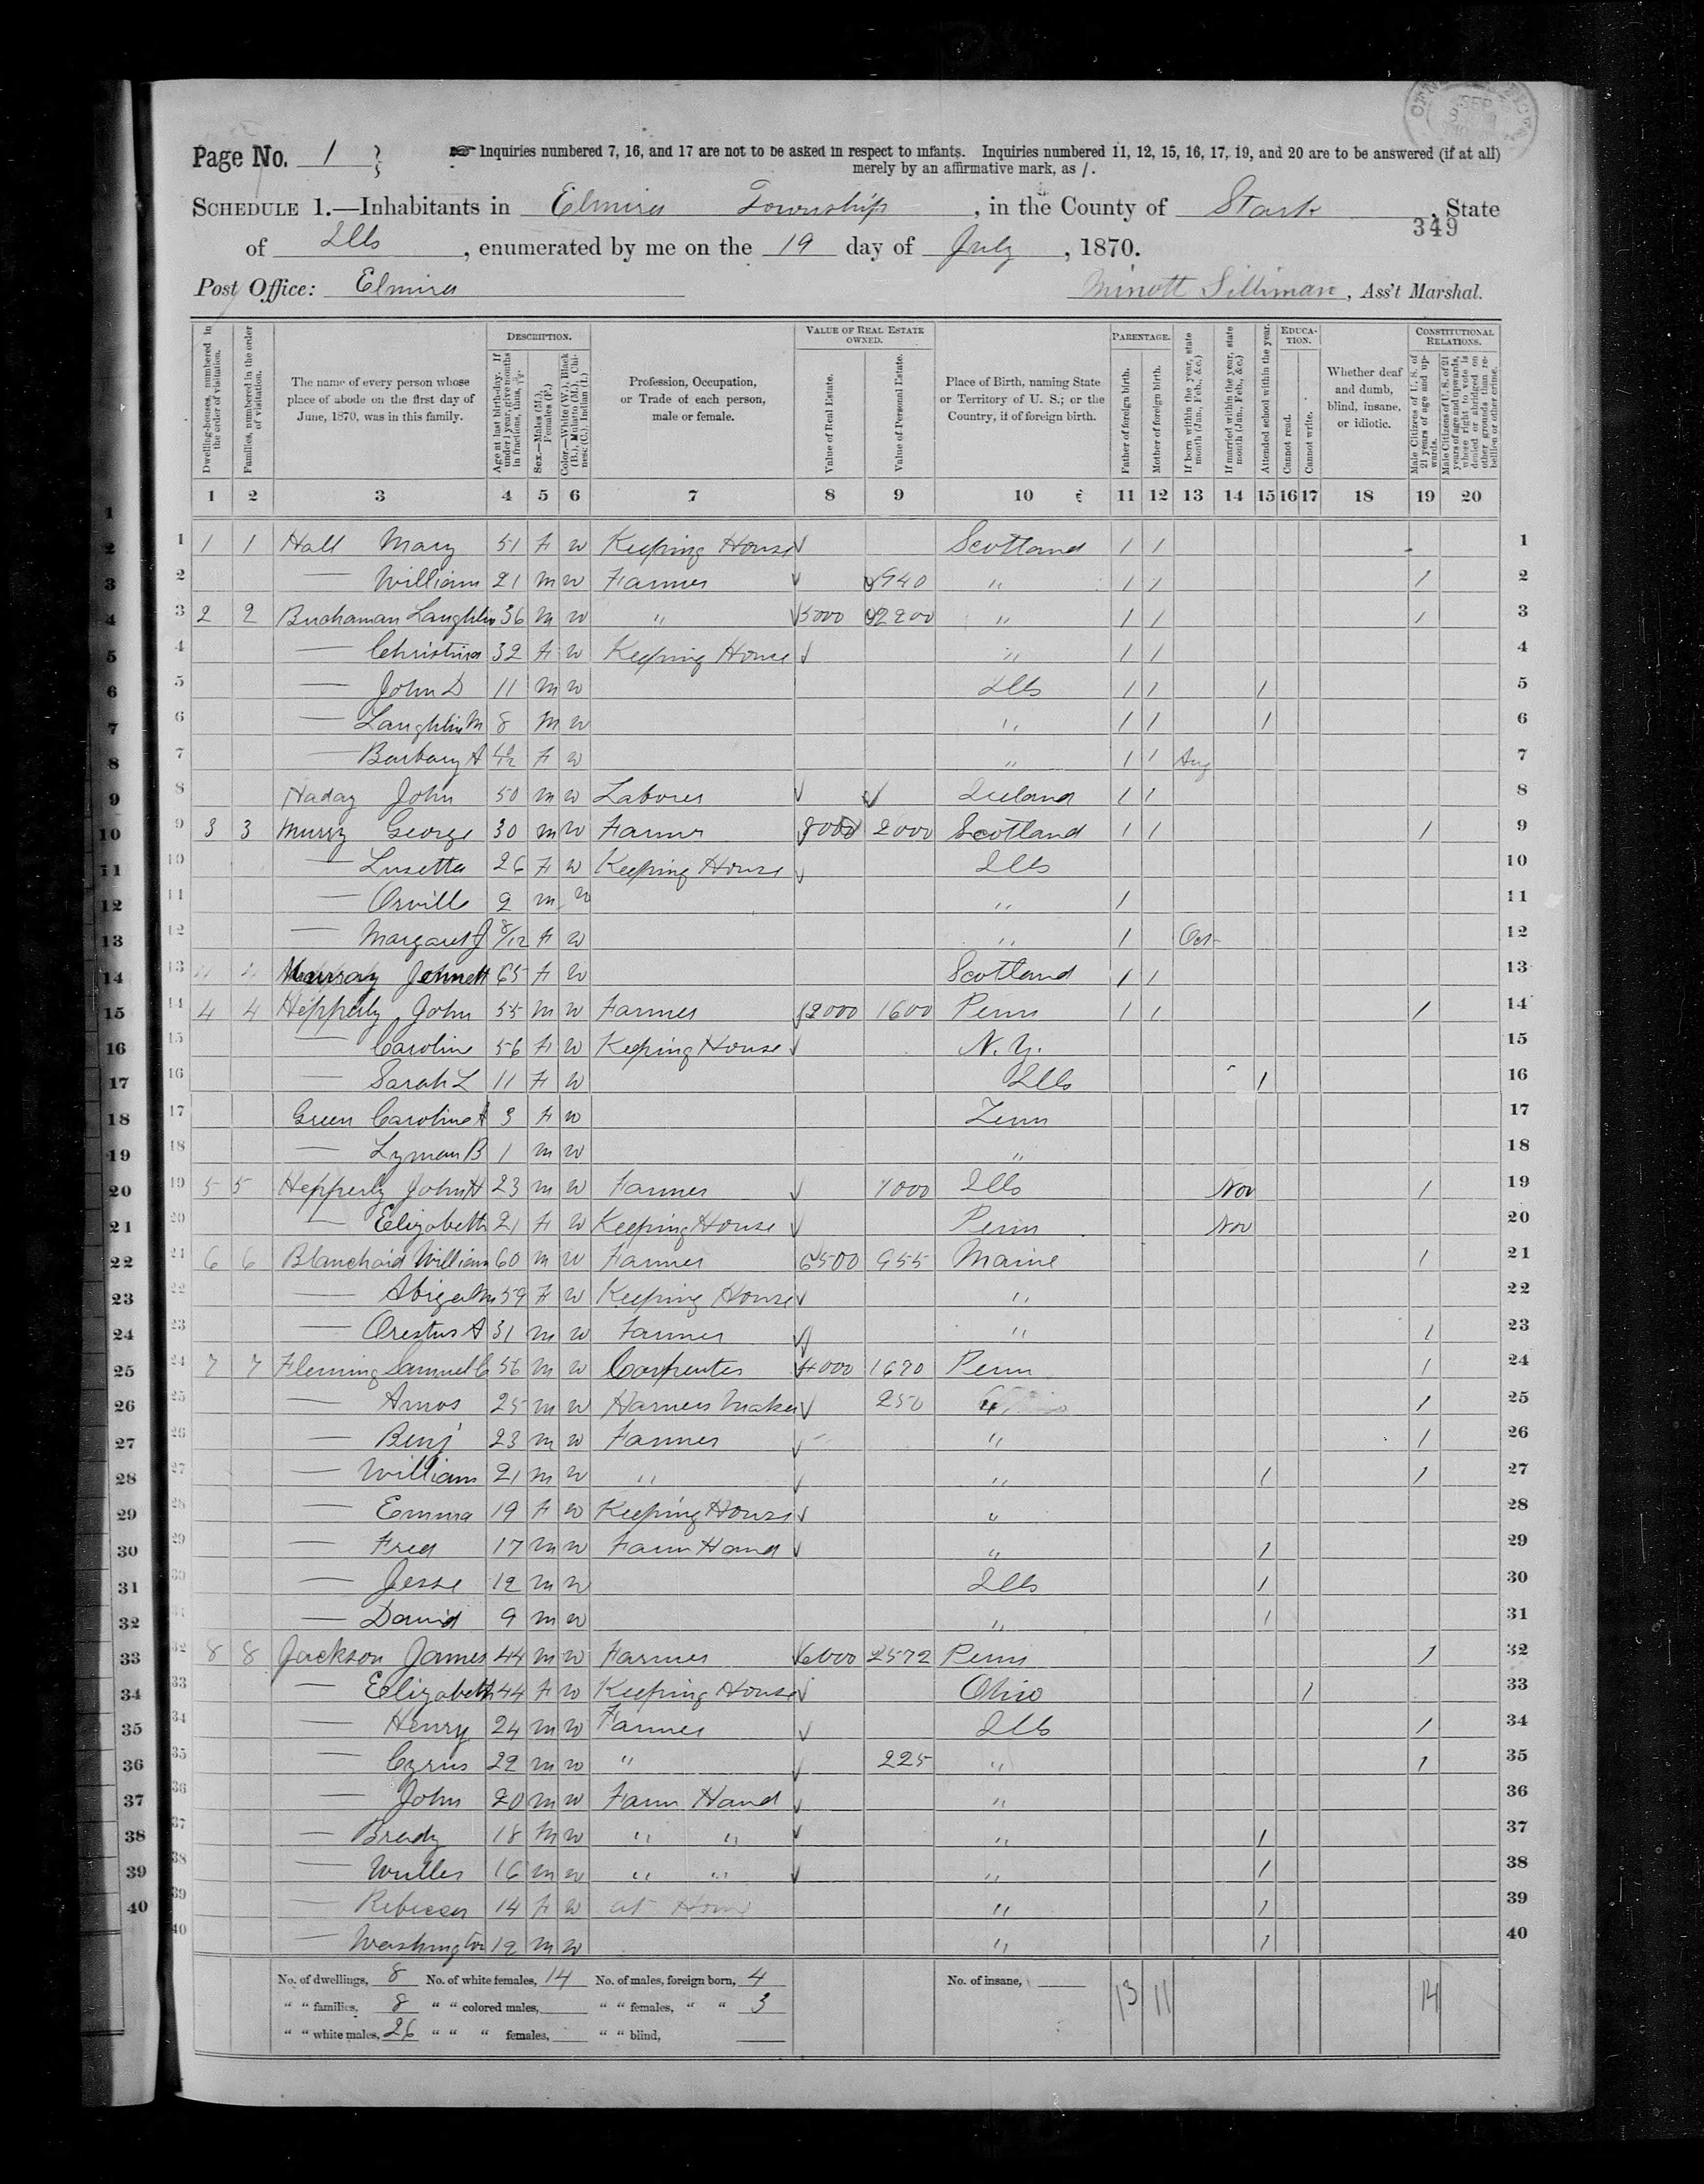 Page No. 1
Inquiries numbered 7, 16, and 17 are not to be asked in respect to infants. Inquiries numbered 11, 12, 15, 16, 17, 19, and 20 are to be answered (if at all)
merely by an affirmative mark, as /.
SCHEDULE 1.—Inhabitants in Elmira Township, in the County of Stark, State
349
of Ills, enumerated by me on the 19 day of July, 1870.
Post Office: Elmira
Minott Silliman, Ass't Marshal.
Dwelling-houses, numbered in the order of visitation.
Families, numbered in the order of visitation.
The name of every person whose place of abode on the first day of June, 1870, was in this family.
DESCRIPTION.
Age at last birthday. If under 1 year, give months in fractions, thus,
Sex.—Males (M.), Females (F.)
Color.—White (W.), Black (B.), Mulatto (M.), Chinese (C.), Indian (I.)
Profession, Occupation, or Trade of each person, male or female.
VALUE OF REAL ESTATE OWNED.
Value of Real Estate.
Value of Personal Estate.
Place of Birth, naming State or Territory of U. S.; or the Country, if of foreign birth.
PARENTAGE.
Father of foreign birth.
Mother of foreign birth.
If born within the year, state month (Jan., Feb., &c.)
If married within the year, state month (Jan., Feb., &c.)
Attended school within the year.
EDUCATION.
Cannot read.
Cannot write.
Whether deaf and dumb, blind, insane, or idiotic.
CONSTITUTIONAL RELATIONS.
Male Citizens of U. S. of 21 years of age and upwards.
Male Citizens of U. S. of 21 years of age and upwards, whose right to vote is denied or abridged on other grounds than rebellion or other crime.
1 2 3 4 5 6 7 8 9 10 11 12 13 14 15 16 17 18 19 20
1 1 1 Hall Mary 51 F W Keeping House Scotland / / 1
2 — William 21 M W Farmer 940 " / / / 2
3 2 2 Buchanan Laughlin 36 M W " 5000 2200 " / / / 3
4 — Christina 32 F W Keeping House " / / 4
5 — John D 11 M W Ills / / / 5
6 — Laughlin M 8 M W " / / / 6
7 — Barbary A F W " / / Aug 7
8 John 50 M W Laborer Ireland / / 8
9 3 3 Murry George 30 M W Farmer 8000 2000 Scotland / / / 9
10 — Lusetta 26 F W Keeping House Ills 10
11 — Orville 2 M W " / 11
12 — Margaret J 8/12 F W " / Oct 12
13 " " Murray Jennett 65 F W Scotland / / 13
14 4 4 Hepperly John 55 M W Farmer 12000 1600 Penn / / / 14
15 — Caroline 56 F W Keeping House N. Y. 15
16 — Sarah L 11 F W Ills / 16
17 Green Caroline A 3 F W Tenn 17
18 — Lyman B 1 M W " 18
19 5 5 Hepperly John H 23 M W Farmer 1000 Ills Nov / 19
20 — Elizabeth 21 F W Keeping House Penn Nov 20
21 6 6 Blanchard William 60 M W Farmer 6500 955 Maine / 21
22 — Abigal M 59 F W Keeping House " 22
23 — Orestus A 31 M W Farmer " / 23
24 7 7 Fleming Samuel C 56 M W Carpenter 4000 1670 Penn / 24
25 — Amos 25 M W Harness Maker 250 " / 25
26 — Benj 23 M W Farmer " / 26
27 — William 21 M W " " / / 27
28 — Emma 19 F W Keeping House " 28
29 — Fred 17 M W Farm Hand " / 29
30 — Jesse 12 M W Ills / 30
31 — David 9 M W " / 31
32 8 8 Jackson James 44 M W Farmer 6000 2572 Penn / 32
33 — Elizabeth 44 F W Keeping House Ohio / 33
34 — Henry 24 M W Farmer Ills / 34
35 — Cyrus 22 M W " 225 " / 35
36 — John 20 M W Farm Hand " 36
37 — Brady 18 M W " " " / 37
38 — 16 M W " " " / 38
39 — Rebecca 14 F W at Home " / 39
40 — Washington 12 M W " / 40
No. of dwellings, 8 No. of white females, 14 No. of males, foreign born, 4 No. of insane,
" " families, 8 " " colored males, " " females, " " 3 13 11 14
" " white males, 26 " " " females, " " blind,
1
2
3
4
5
6
7
8
9
10
11
12
13
14
15
16
17
18
19
20
21
22
23
24
25
26
27
28
29
30
31
32
33
34
35
36
37
38
39
40